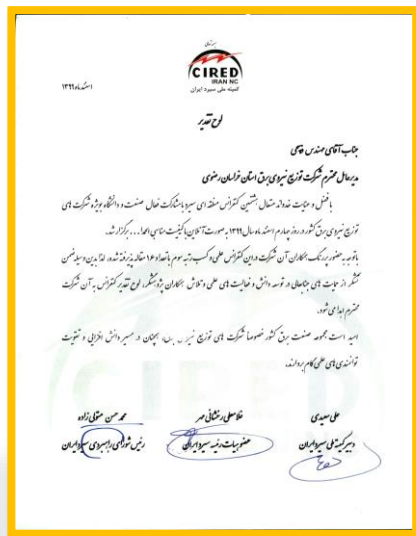 CIRED
IRAN NC
کمیته ملی سیرد ایران
اسفندماه ۱۳۹۹
لوح تقدیر
جناب آقای مهندس
مدیرعامل محترم شرکت توزیع نیروی برق استان خراسان رضوی
با فضل و عنایت خداوند متعال هشتمین کنفرانس منطقه ای سیرد با مشارکت فعال صنعت و دانشگاه بویژه شرکت های
توزیع نیروی برق کشور در روز چهارم اسفند ماه سال ۱۳۹۹ به صورت آنلاین با کیفیت مناسبی اجرا ... برگزار شد.
با توجه به حضور پررنگ همکاران آن شرکت در این کنفرانس علمی و کسب رتبه سوم با تعداد ۱۶ مقاله پذیرفته شده، لذا بدین وسیله ضمن
تشکر از حمایت های جنابعالی در توسعه دانش و فعالیت های علمی و تلاش همکاران پژوهشگر، لوح تقدیر کنفرانس به آن شرکت
محترم اهدا می شود.
امید است مجموعه صنعت برق کشور خصوصا شرکت های توزیع همچنان در مسیر دانش افزایی و تقویت
توانمندی های علمی گام بردارند.
علی سعیدی
دبیر کمیته ملی سیرد ایران
غلامعلی رخشانی مهر
عضو هیات رئیسه سیرد ایران
محمد حسن متولی زاده
رئیس شورای راهبردی سیرد ایران